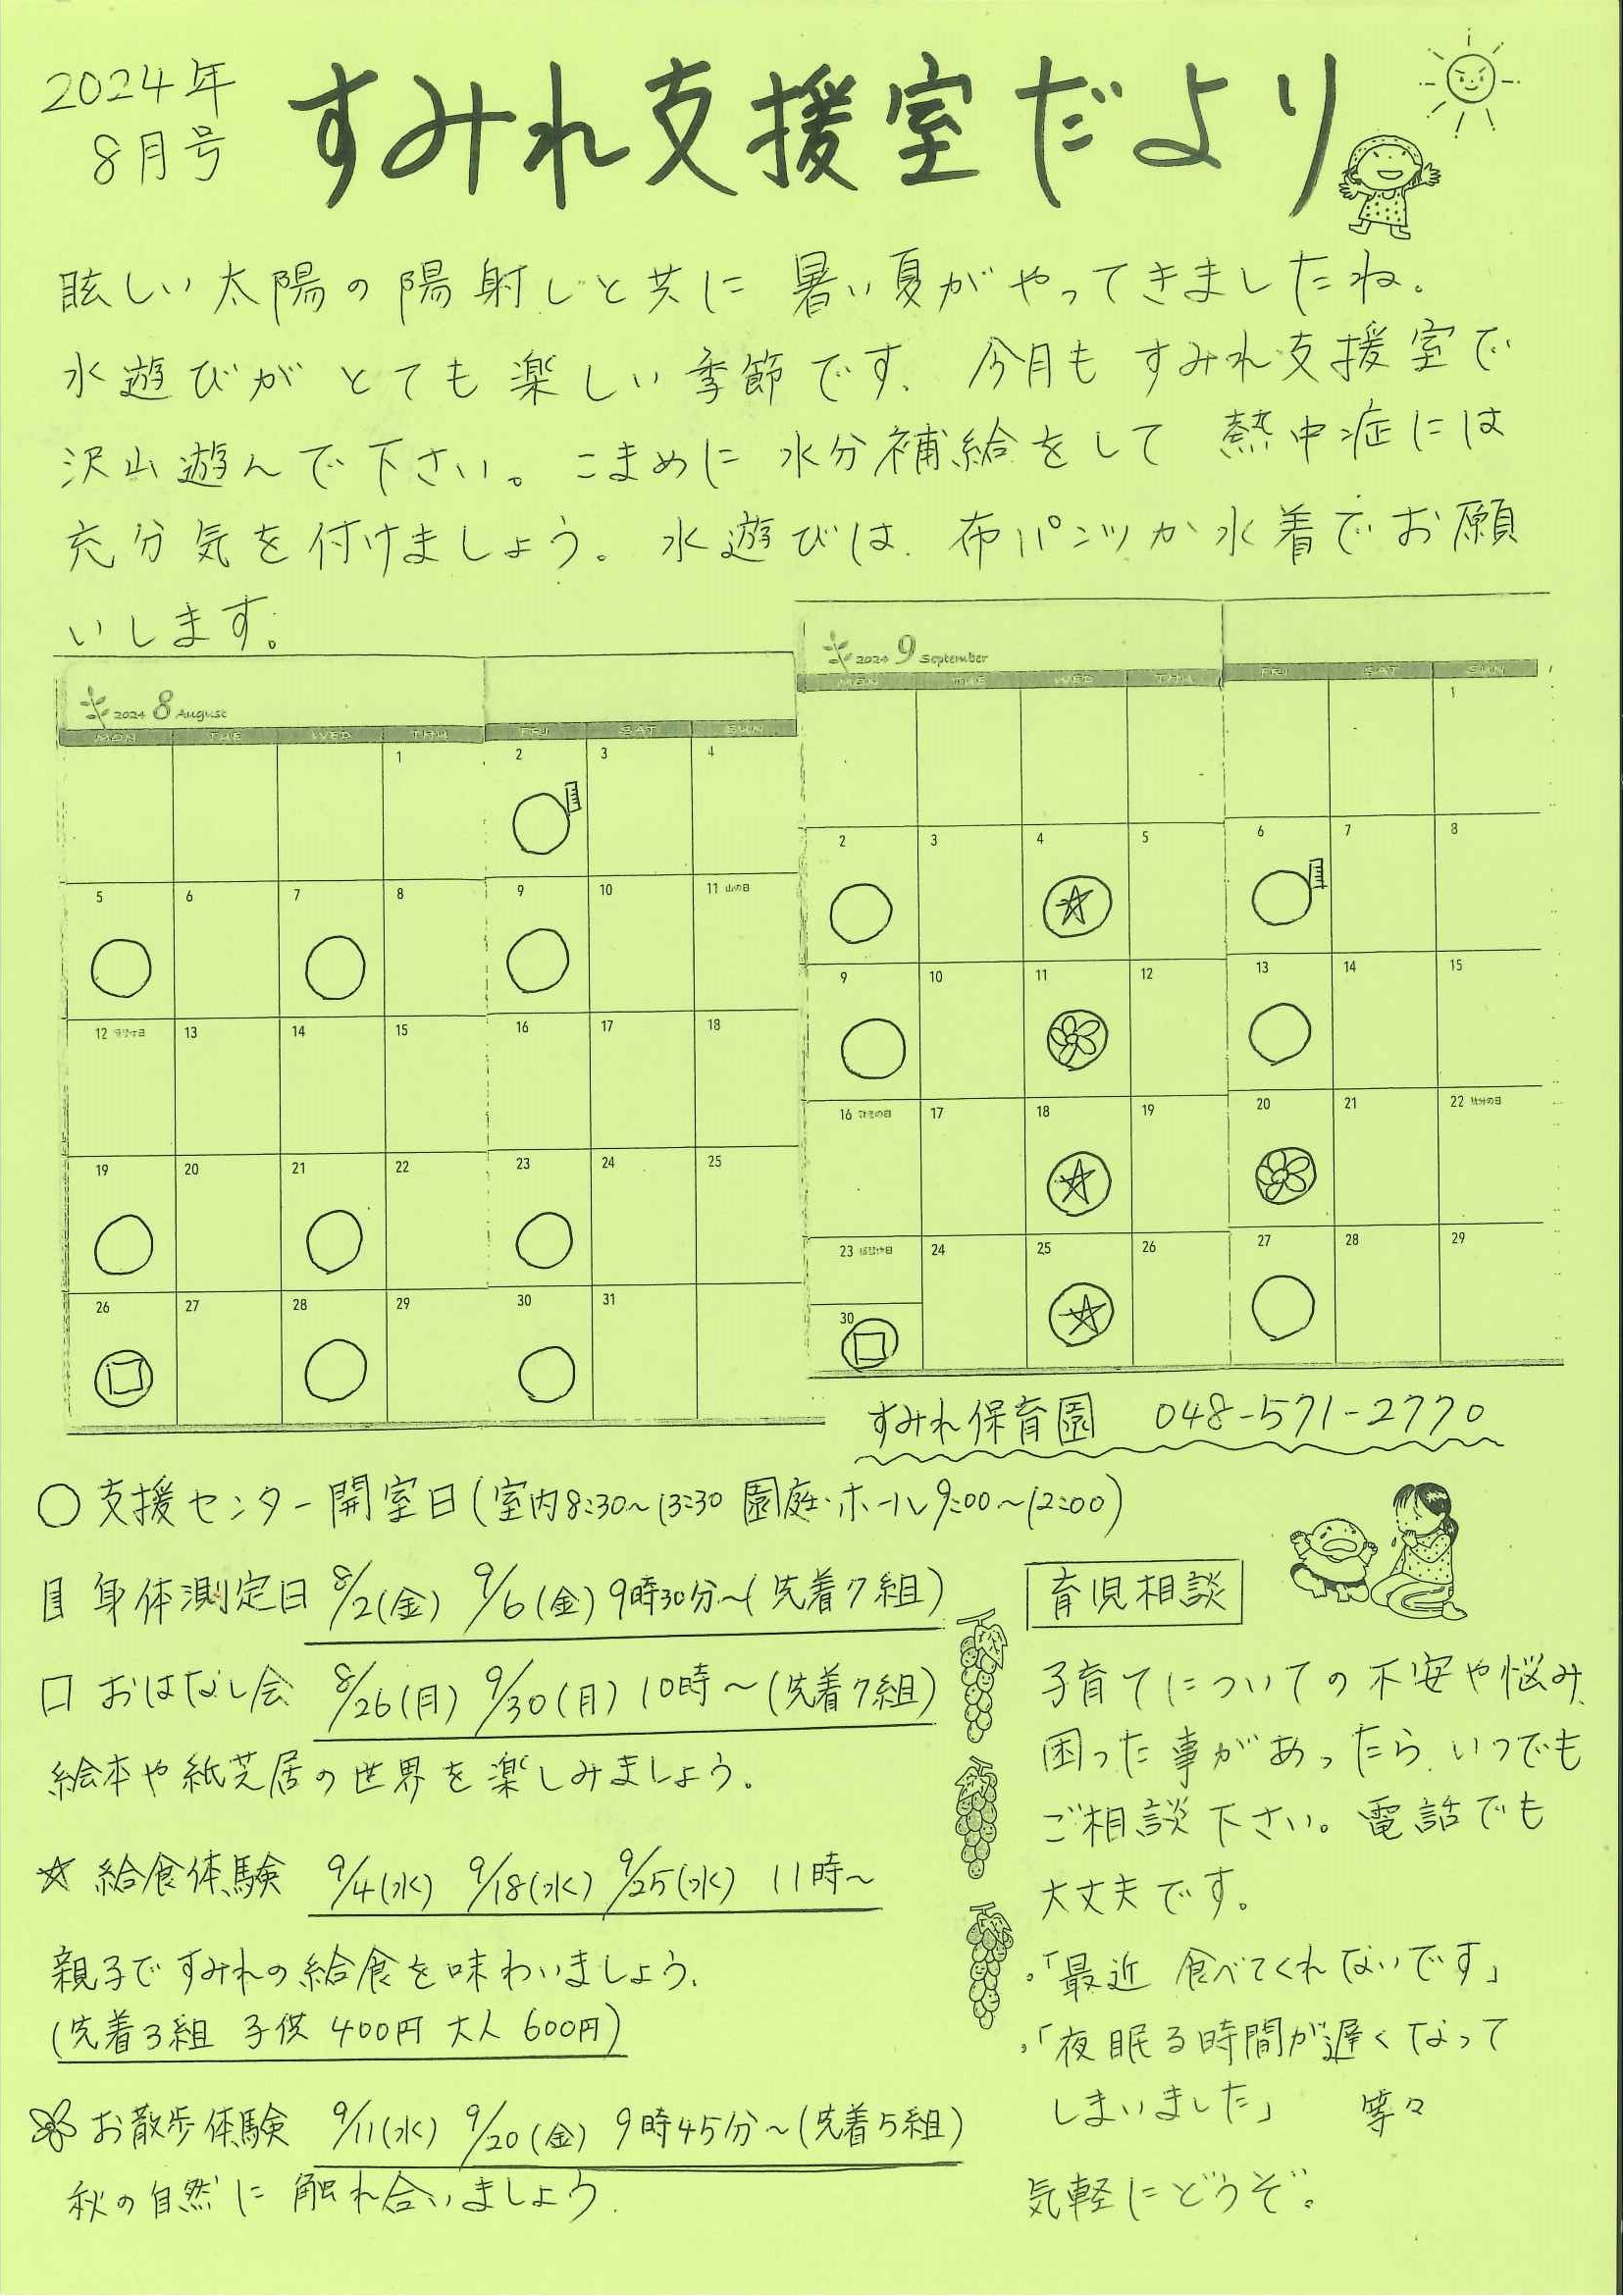 2024年
8月号
すみれ支援室だより
眩しい太陽の陽射しと共に 暑い夏がやってきましたね。
水遊びが とても楽しい季節です。今月も すみれ支援室で
沢山遊んで下さい。こまめに 水分補給をして 熱中症には
充分気を付けましょう。水遊びは、布パンツか水着でお願
いします。
2024 8 August
MON TUE WED THU FRI SAT SUN
1 2 3 4
5 6 7 8 9 10 11 山の日
12 振替休日 13 14 15 16 17 18
19 20 21 22 23 24 25
26 27 28 29 30 31
2024 9 September
MON TUE WED THU FRI SAT SUN
1
2 3 4 5 6 7 8
9 10 11 12 13 14 15
16 敬老の日 17 18 19 20 21 22 秋分の日
23 振替休日 24 25 26 27 28 29
30
すみれ保育園 048-571-2770
○ 支援センター開室日(室内8:30~13:30 園庭・ホール9:00~12:00)
身体測定日 8/2(金) 9/6(金) 9時30分~(先着7組)
□ おはなし会 8/26(月) 9/30(月) 10時~(先着7組)
絵本や紙芝居の世界を楽しみましょう。
☆ 給食体験 9/4(水) 9/18(水) 9/25(水) 11時~
親子ですみれの給食を味わいましょう。
(先着3組 子供 400円 大人 600円)
お散歩体験 9/11(水) 9/20(金) 9時45分~(先着5組)
秋の自然に 触れ合いましょう。
育児相談
子育てについての不安や悩み、
困った事があったら、いつでも
ご相談下さい。電話でも
大丈夫です。
・「最近 食べてくれないです」
・「夜眠る時間が遅くなって
しまいました」 等々
気軽にどうぞ。